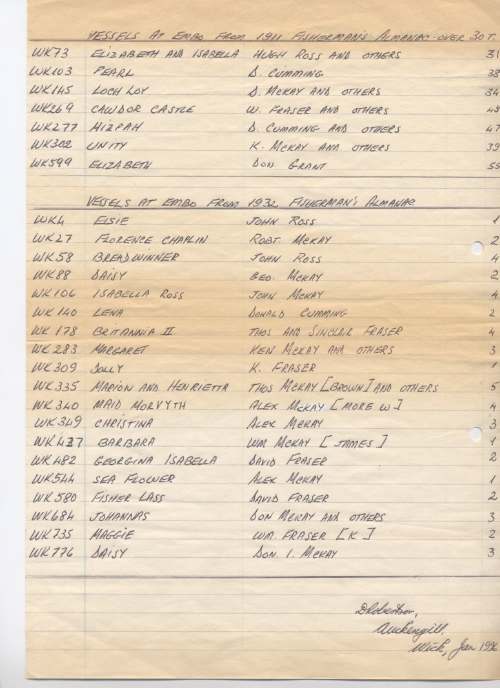 VESSELS AT EMBO FROM 1911 FISHERMAN'S ALMANAC - OVER 30 T.
WK73 ELIZABETH AND ISABELLA HUGH ROSS AND OTHERS 31
WK103 PEARL D. CUMMING 38
WK145 LOCH LOY D. MCKAY AND OTHERS 34
WK269 CAWDOR CASTLE W. FRASER AND OTHERS
WK277 MIZPAH D. CUMMING AND OTHERS 47
WK302 UNITY K. MCKAY AND OTHERS 39
WK599 ELIZABETH DON GRANT 55
VESSELS AT EMBO FROM 1932 FISHERMAN'S ALMANAC
WK4 ELSIE JOHN ROSS 1
WK27 FLORENCE CHAPLIN ROBT. MCKAY 2
WK58 BREADWINNER JOHN ROSS 4
WK88 DAISY GEO. MCKAY 2
WK106 ISABELLA ROSS JOHN MCKAY 4
WK140 LENA DONALD CUMMING 2
WK178 BRITANNIA II THOS AND SINCLAIR FRASER 4
WK283 MARGARET KEN MCKAY AND OTHERS 3
WK309 DOLLY K. FRASER 1
WK335 MARION AND HENRIETTA THOS MCKAY [BROWN] AND OTHERS 5
WK340 MAID MORVYTH ALEX MCKAY [MORE W.] 4
WK349 CHRISTINA ALEX MCKAY 3
WK437 BARBARA WM MCKAY [JAMES] 1
WK482 GEORGINA ISABELLA DAVID FRASER 2
WK544 SEA FLOWER ALEX MCKAY 1
WK580 FISHER LASS DAVID FRASER 2
WK684 JOHANNAS DON MCKAY AND OTHERS 3
WK735 MAGGIE WM. FRASER [K] 2
WK776 DAISY DON. I. MCKAY 3
DRobertson,
Auckengill.
Wick, Jan